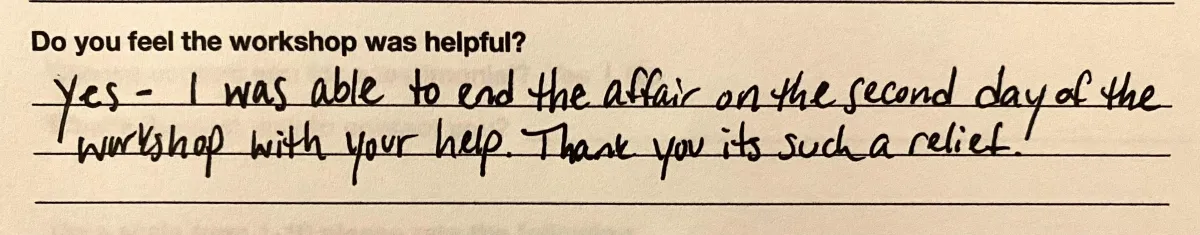 Do you feel the workshop was helpful?
Yes - I was able to end the affair on the second day of the
workshop with your help. Thank you its such a relief!